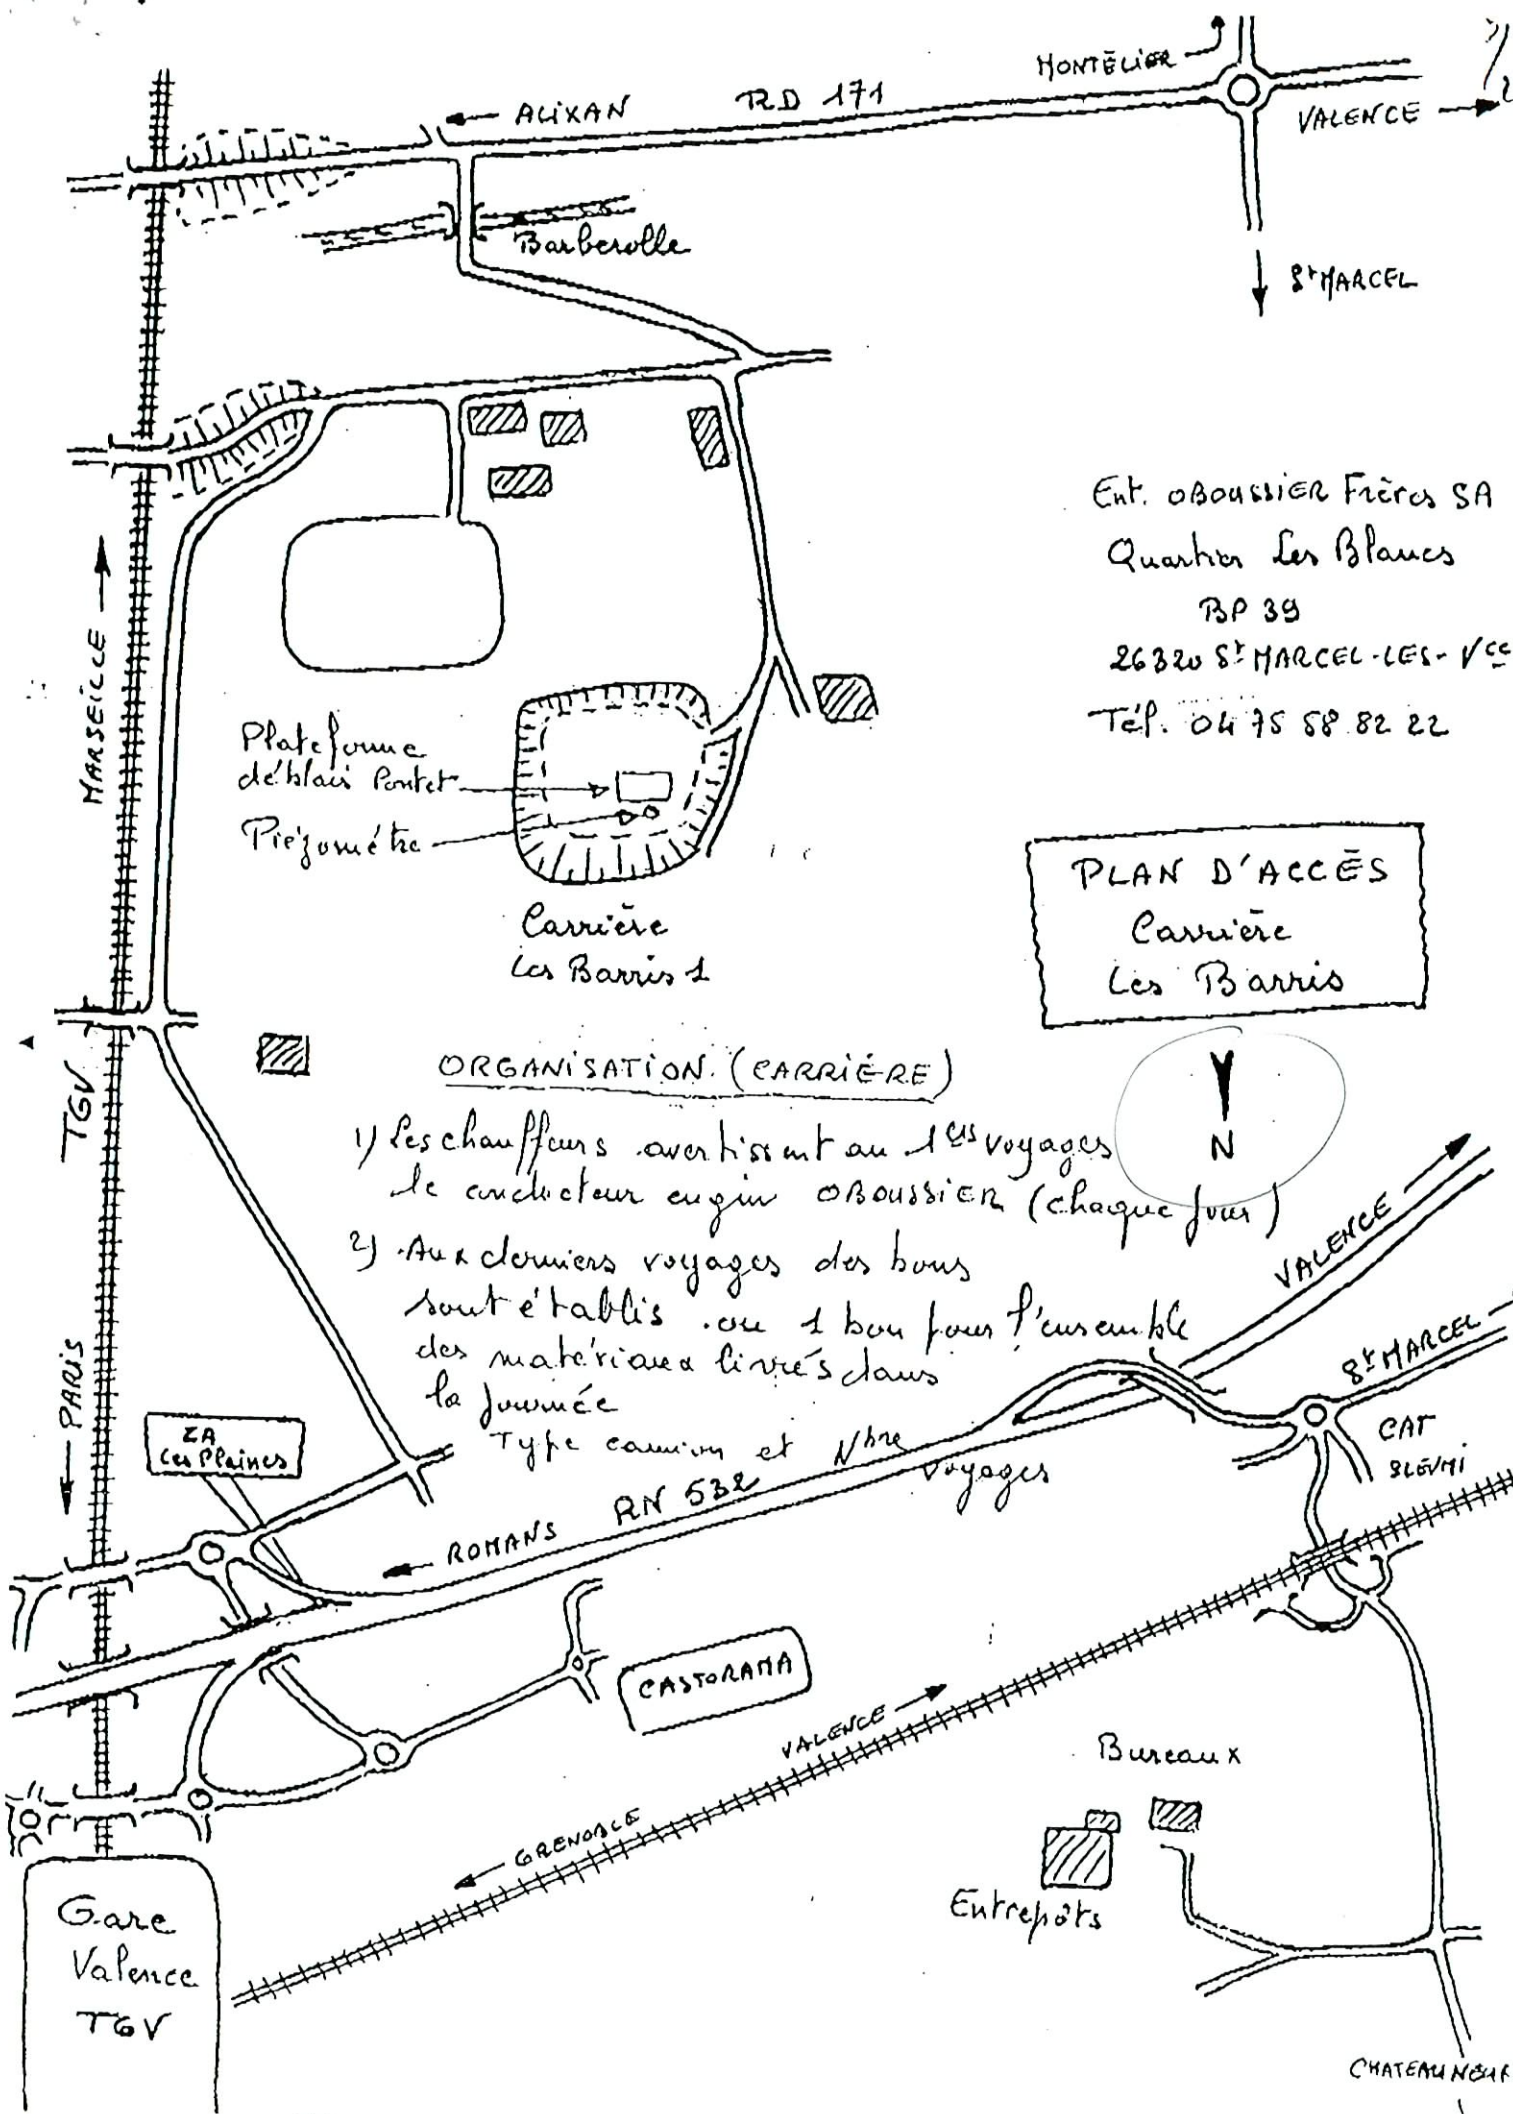 MONTÉLIER
ALIXAN RD 171
VALENCE
Barberolle
St MARCEL
Ent. OBOUSSIER Frères SA
Quartier Les Blancs
BP 39
26320 St MARCEL-LES-Vce
Tél. 04 75 58 82 22
MARSEILLE
Plateforme
déblais Pontet
Piézomètre
Carrière
Les Barris 1
PLAN D'ACCÈS
Carrière
Les Barris
N
TGV
ORGANISATION. (CARRIÉRE)
1) Les chauffeurs avertissent au 1ers voyages
le conducteur engin OBOUSSIER (chaque jour)
2) Aux derniers voyages des bons
sont établis ou 1 bon pour l'ensemble
des matériaux livrés dans
la journée
Type camion et Nbre
voyages
VALENCE
St MARCEL
CAT
PARIS
ZA
Les Plaines
ROMANS RN 532
CASTORAMA
VALENCE
GRENOBLE
Bureaux
Entrepôts
Gare
Valence
TGV
CHATEAUNEUF